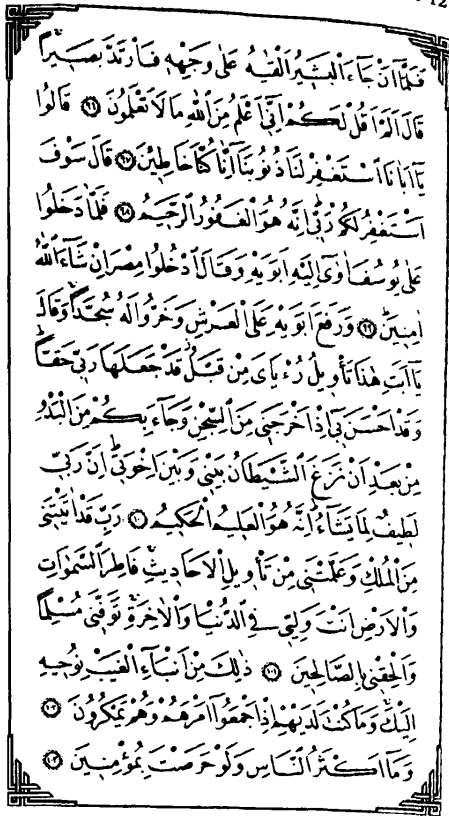 12
فَلَمَّٓا اَنْ جَٓاءَ الْبَشٖيرُ اَلْقٰيهُ عَلٰى وَجْهِهٖ فَارْتَدَّ بَصٖيرًاۚ
قَالَ اَلَمْ اَقُلْ لَكُمْ اِنّٖٓي اَعْلَمُ مِنَ اللّٰهِ مَا لَا تَعْلَمُونَ ﴿٩٦﴾ قَالُوا
يَٓا اَبَانَا اسْتَغْفِرْ لَنَا ذُنُوبَنَٓا اِنَّا كُنَّا خَاطِـٖٔينَ ﴿٩٧﴾ قَالَ سَوْفَ
اَسْتَغْفِرُ لَكُمْ رَبّٖيؕ اِنَّهُ هُوَ الْغَفُورُ الرَّحٖيمُ ﴿٩٨﴾ فَلَمَّا دَخَلُوا
عَلٰى يُوسُفَ اٰوٰٓى اِلَيْهِ اَبَوَيْهِ وَقَالَ ادْخُلُوا مِصْرَ اِنْ شَٓاءَ اللّٰهُ
اٰمِنٖينَؕ ﴿٩٩﴾ وَرَفَعَ اَبَوَيْهِ عَلَى الْعَرْشِ وَخَرُّوا لَهُ سُجَّدًاۚ وَقَالَ
يَٓا اَبَتِ هٰذَا تَأْوٖيلُ رُءْيَايَ مِنْ قَبْلُؗ قَدْ جَعَلَهَا رَبّٖي حَقًّاؕ
وَقَدْ اَحْسَنَ بٖٓي اِذْ اَخْرَجَنٖي مِنَ السِّجْنِ وَجَٓاءَ بِكُمْ مِنَ الْبَدْوِ
مِنْ بَعْدِ اَنْ نَزَغَ الشَّيْطَانُ بَيْنٖي وَبَيْنَ اِخْوَتٖيؕ اِنَّ رَبّٖي
لَطٖيفٌ لِمَا يَشَٓاءُؕ اِنَّهُ هُوَ الْعَلٖيمُ الْحَكٖيمُ ﴿١٠٠﴾ رَبِّ قَدْ اٰتَيْتَنٖي
مِنَ الْمُلْكِ وَعَلَّمْتَنٖي مِنْ تَأْوٖيلِ الْاَحَادٖيثِۚ فَاطِرَ السَّمٰوَاتِ
وَالْاَرْضِ اَنْتَ وَلِيّٖ فِي الدُّنْيَا وَالْاٰخِرَةِۚ تَوَفَّنٖي مُسْلِمًا
وَاَلْحِقْنٖي بِالصَّالِحٖينَ ﴿١٠١﴾ ذٰلِكَ مِنْ اَنْبَٓاءِ الْغَيْبِ نُوحٖيهِ
اِلَيْكَۚ وَمَا كُنْتَ لَدَيْهِمْ اِذْ اَجْمَعُٓوا اَمْرَهُمْ وَهُمْ يَمْكُرُونَ ﴿١٠٢﴾
وَمَٓا اَكْثَرُ النَّاسِ وَلَوْ حَرَصْتَ بِمُؤْمِنٖينَ ﴿١٠٣﴾